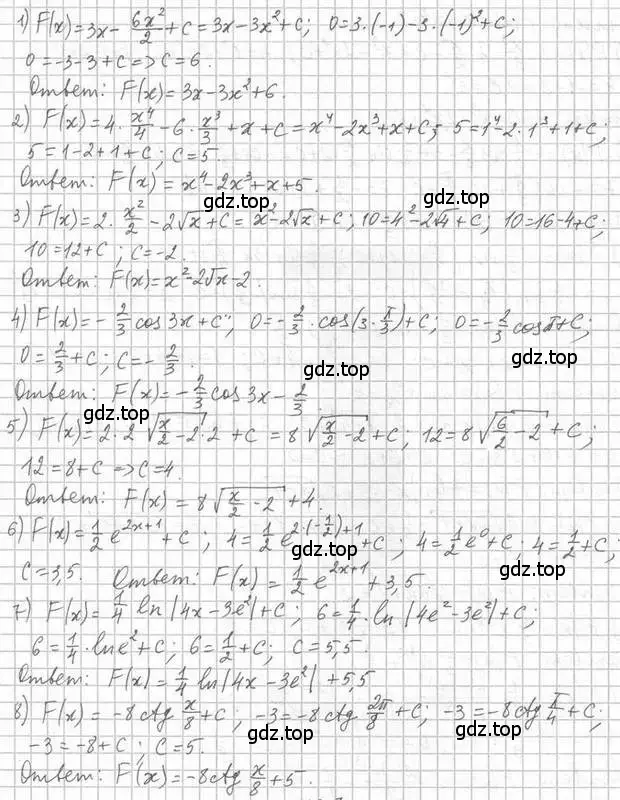 1) F(x)=3x-6x²/2+C=3x-3x²+C; 0=3·(-1)-3·(-1)²+C;
0=-3-3+C=>C=6.
Ответ: F(x)=3x-3x²+6.
2) F(x)=4·x⁴/4-6·x³/3+x+C=x⁴-2x³+x+C; 5=1⁴-2·1³+1+C;
5=1-2+1+C; C=5.
Ответ: F(x)=x⁴-2x³+x+5.
gdz.top
gdz.top
3) F(x)=2·x²/2-2√x+C=x²-2√x+C; 10=4²-2√4+C; 10=16-4+C;
10=12+C; C=-2.
Ответ: F(x)=x²-2√x-2.
4) F(x)=-2/3 cos3x+C; 0=-2/3·cos(3·π/3)+C; 0=-2/3 cosπ+C;
0=2/3+C; C=-2/3.
gdz.top
Ответ: F(x)=-2/3 cos3x-2/3.
gdz.top
gdz.top
5) F(x)=2·2√(x/2-2)·2+C=8√(x/2-2)+C; 12=8√(6/2-2)+C;
12=8+C=>C=4.
Ответ: F(x)=8√(x/2-2)+4.
6) F(x)=1/2e²ˣ⁺¹+C; 4=1/2e^(2·(-1/2)+1)+C; 4=1/2e⁰+C; 4=1/2+C;
gdz.top
gdz.top
C=3,5. Ответ: F(x)=1/2e²ˣ⁺¹+3,5.
7) F(x)=1/4 ln|4x-3e²|+C; 6=1/4·ln|4e²-3e²|+C;
6=1/4·lne²+C; 6=1/2+C; C=5,5.
Ответ: F(x)=1/4 ln|4x-3e²|+5,5
8) F(x)=-8ctg x/8+C; -3=-8ctg 2π/8+C; -3=-8ctg π/4+C;
gdz.top
gdz.top
-3=-8+C; C=5.
Ответ: F(x)=-8ctg x/8+5.